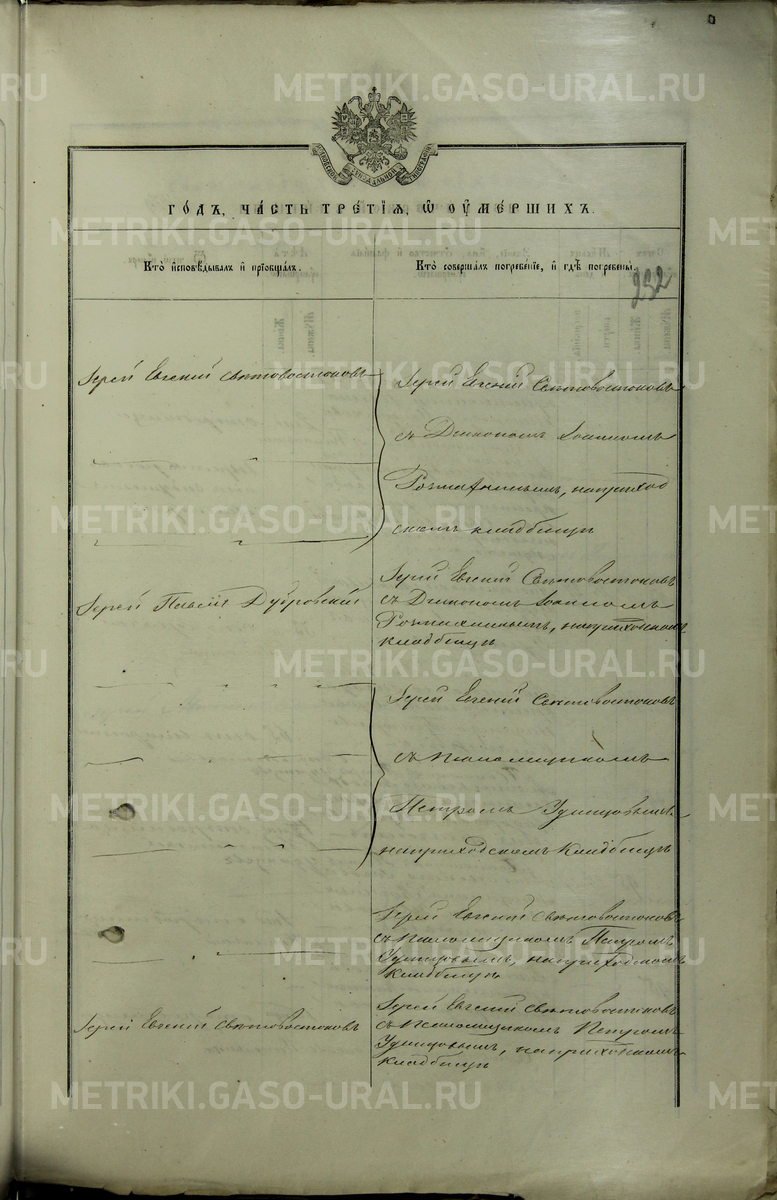 METRIKI.GASO-URAL.RU
ГО́ДЪ, ЧА́СТЬ ТРЕ́ТІѦ, Ѡ ОУ҆МЕ́РШИХЪ.
Кто̀ и҆сповѣ́дывалъ и҆ прїобща́лъ.
Кто̀ соверша́лъ погребе́нїе, и҆ гдѣ̀ погребены̀.
232
Іерей Евгеній Свѣтовостоковъ
Іерей Евгеній Свѣтовостоковъ
съ Діакономъ Іоанномъ
на приход
скомъ кладбищѣ
Іерей Павелъ Дубровскій
Іерей Евгеній Свѣтовостоковъ
съ Діакономъ Іоанномъ
на приходскомъ
кладбищѣ
Іерей Евгеній Свѣтовостоковъ
съ псаломщикомъ
Петромъ Удинцовымъ
на приходскомъ кладбищѣ
Іерей Евгеній Свѣтовостоковъ
съ псаломщикомъ Петромъ
Удинцовымъ, на приходскомъ
кладбищѣ
Іерей Евгеній Свѣтовостоковъ
Іерей Евгеній Свѣтовостоковъ
съ псаломщикомъ Петромъ
Удинцовымъ, на приходскомъ
кладбищѣ